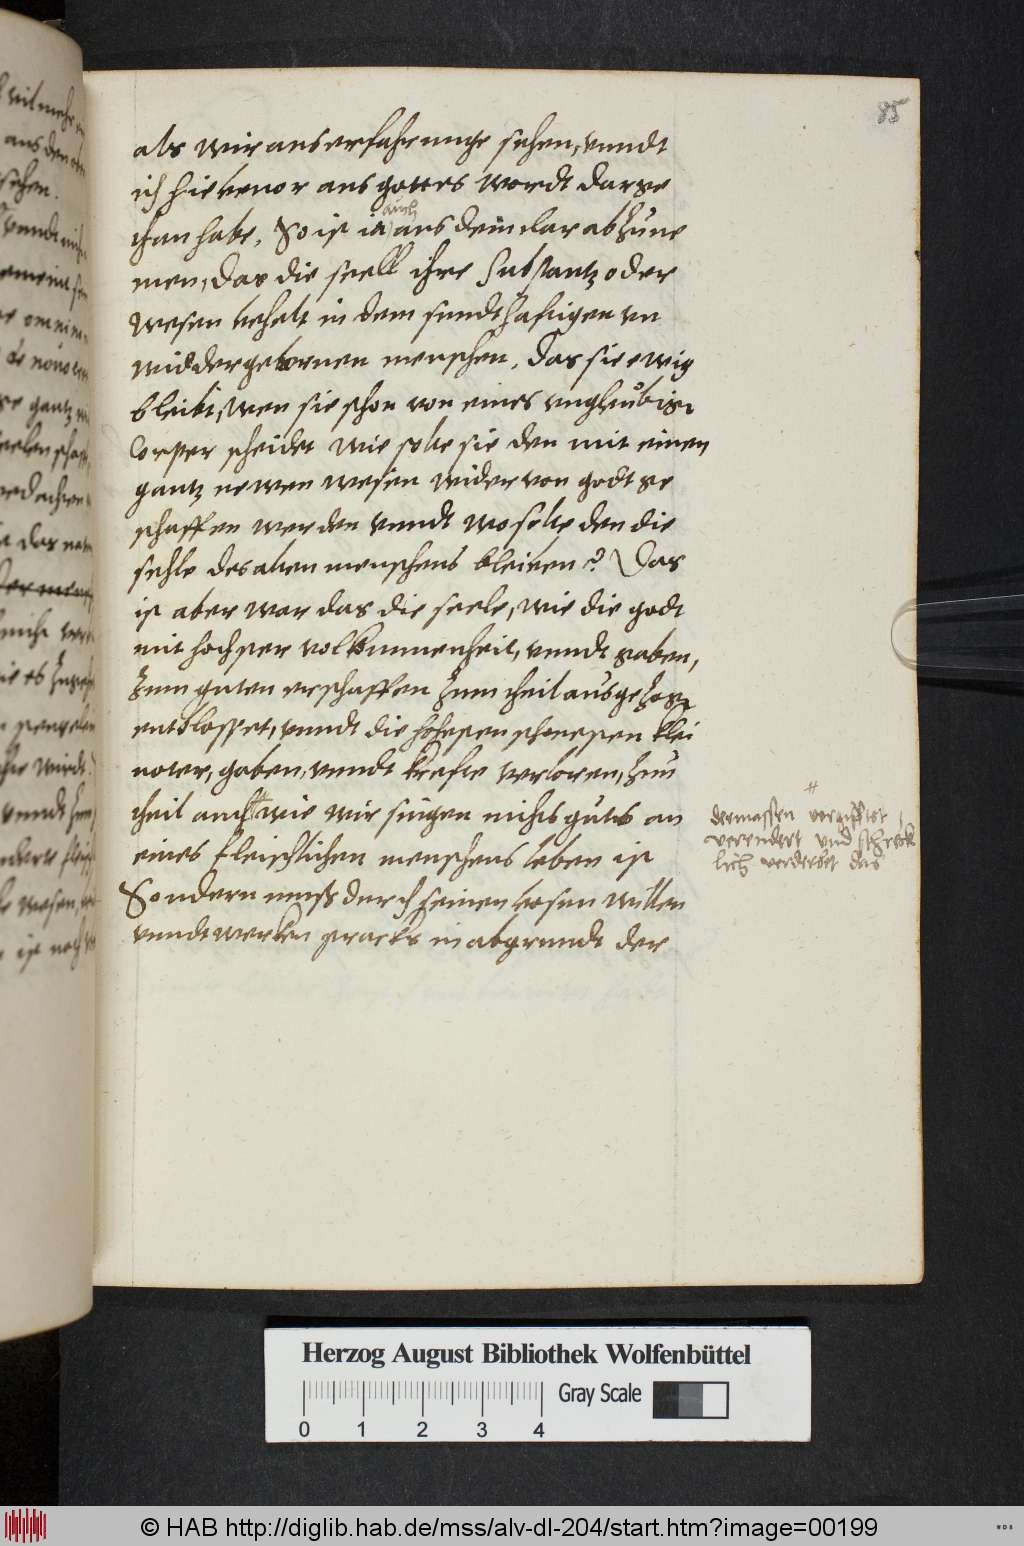 85
als wir aus erfahrunge sehen, vnndt
ich hiebeuor aus gottes wordt darge
than habe. So ist ia auch aus dem clar abzune
men, das die seell ihre substantz oder
wesen behelt in dem sundthafftigen vn
widdergebornen menschen, das sie ewig
bleibt, wen sie schon von eines vngleubigen
Corper scheidet wie solte sie den mit einen
gantz newen wesen wider von godt ge
schaffen werden vnndt wo solte den die
sehle des alten menschens bleiben? Das
ist aber war das die seele, wie die godt
mit hochster volkommenheit, vnndt gaben,
zum guten erschaffen zum theil ausgezogen
entblosset, vnndt die hohesten schonesten klei
noter, gaben, vnndt krefte verloren, zum
theil auch # wie wir singen nichs guts an
eines fleischlichen menschens leben ist
Sondern muss durch seinen bosen willen
vnndt wercken stracks in abgrundt der
#
dermassen vergifftet,
verendert und schreck
lich verderbet das
vnndt
wesen,
Herzog August Bibliothek Wolfenbüttel
0 1 2 3 4
Gray Scale
© HAB http://diglib.hab.de/mss/alv-dl-204/start.htm?image=00199